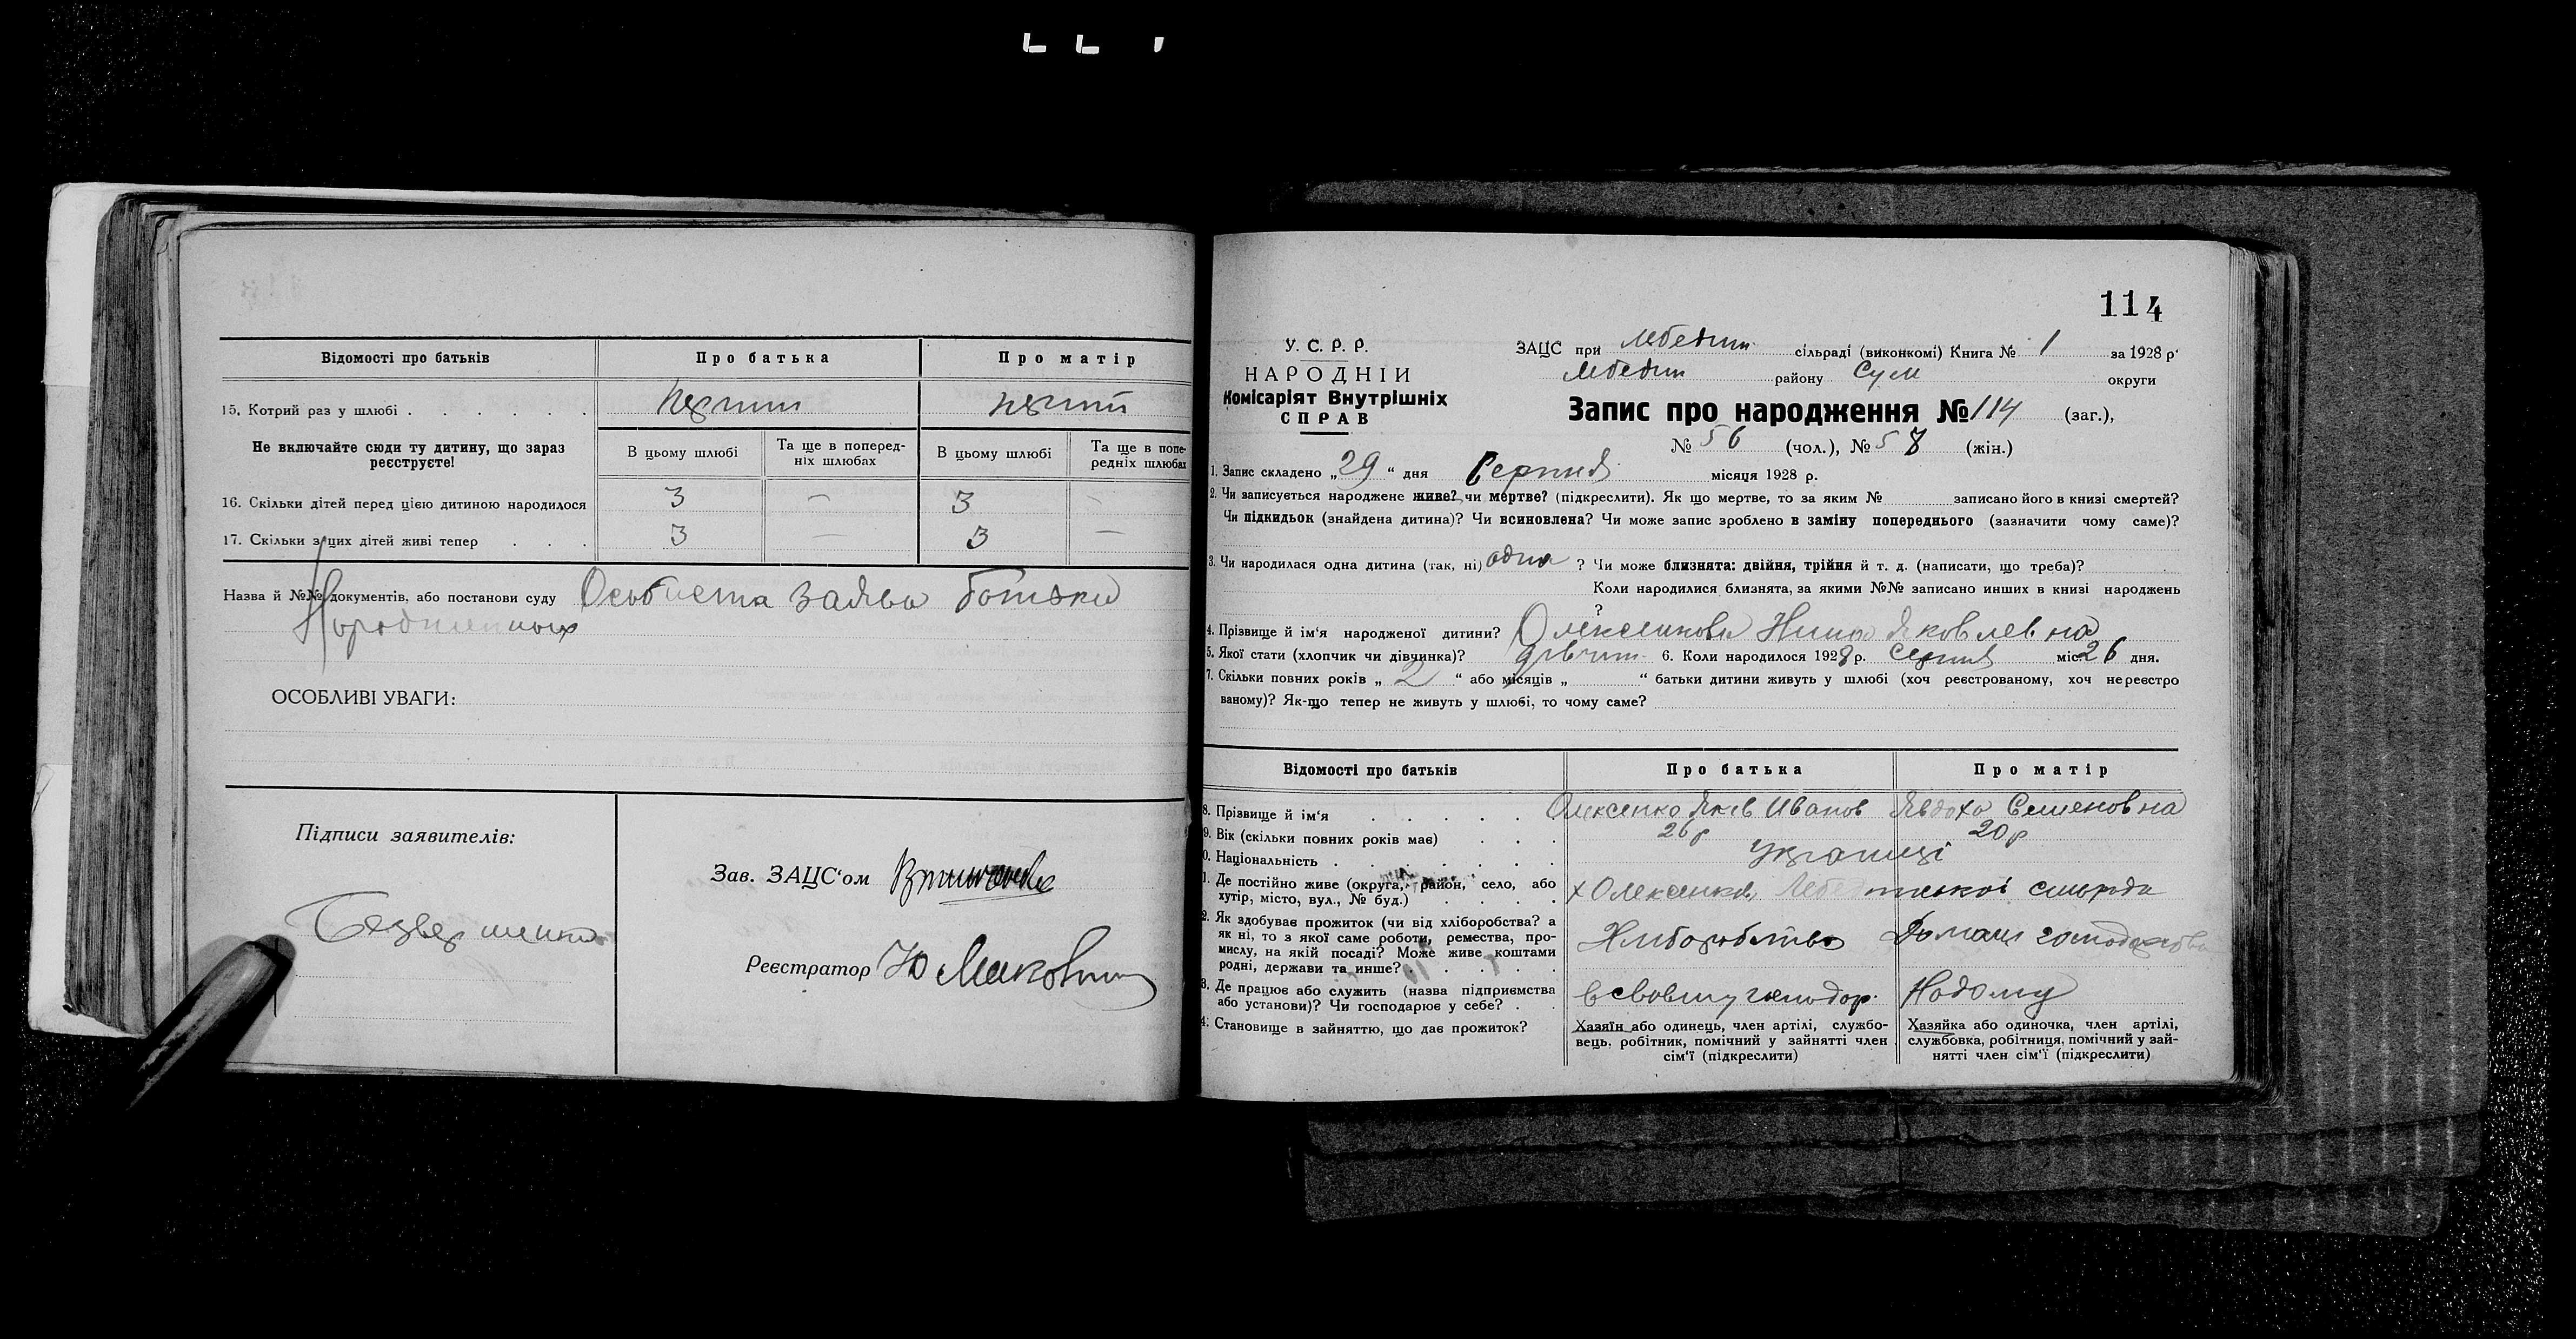 Відомості про батьків Про батька Про матір
15. Котрий раз у шлюбі . . . . . . перший перший
Не включайте сюди ту дитину, що зараз реєструєте!
В цьому шлюбі Та ще в поперед-ніх шлюбах В цьому шлюбі Та ще в попе-редніх шлюбах
16. Скільки дітей перед цією дитиною народилося 3 — 3 —
17. Скільки з цих дітей живі тепер . . . 3 — 3 —
Назва й №№ документів, або постанови суду Особиста заява батька
ОСОБЛИВІ УВАГИ:
Підписи заявителів:
Зав. ЗАЦС'ом
Реєстратор
114
У. С. Р. Р.
НАРОДНІЙ
Комісаріят Внутрішніх
СПРАВ
ЗАЦС при Лебедин сільраді (виконкомі) Книга № 1 за 1928 р.
Лебедин району Сум округи
Запис про народження № 114 (заг.),
№ 56 (чол.), № 58 (жін.)
1. Запис складено „29“ дня Серпня місяця 1928 р.
2. Чи записується народжене живе? чи мертве? (підкреслити). Як що мертве, то за яким № записано його в книзі смертей?
Чи підкидьок (знайдена дитина)? Чи всиновлена? Чи може запис зроблено в заміну попереднього (зазначити чому саме)?
3. Чи народилася одна дитина (так, ні) одна ? Чи може близнята: двійня, трійня й т. д. (написати, що треба)?
Коли народилися близнята, за якими №№ записано инших в книзі народжень
?
4. Прізвище й ім'я народженої дитини? Олексенкова Нина Яковлевна
5. Якої стати (хлопчик чи дівчинка)? дівчин 6. Коли народилося 1928 р. Серпня міс. 26 дня.
7. Скільки повних років „ 2 “ або місяців „ “ батьки дитини живуть у шлюбі (хоч реєстрованому, хоч нереєстро
ваному)? Як-що тепер не живуть у шлюбі, то чому саме?
Відомості про батьків Про батька Про матір
8. Прізвище й ім'я . . . . . Олексенко Яків Иванов Явдоха Семеновна
9. Вік (скільки повних років має) . . . 26 р 20 р
0. Національність . . . . . . . Украинці
1. Де постійно живе (округа, район, село, або
хутір, місто, вул., № буд.) . . . . х Олексенков, Лебединської сильрада
2. Як здобуває прожиток (чи від хліборобства? а
як ні, то з якої саме роботи, ремества, про-
мислу, на якій посаді? Може живе коштами
родні, держави та инше? . . . . . Хліборобство Домашн господарство
3. Де працює або служить (назва підприємства
або установи)? Чи господарює у себе? . . в своему господар. Надому
4. Становище в зайняттю, що дає прожиток?
Хазяїн або одинець, член артілі, службо-
вець, робітник, помічний у зайнятті член
сім'ї (підкреслити)
Хазяйка або одиночка, член артілі,
службовка, робітниця, помічний у зай-
нятті член сім'ї (підкреслити)